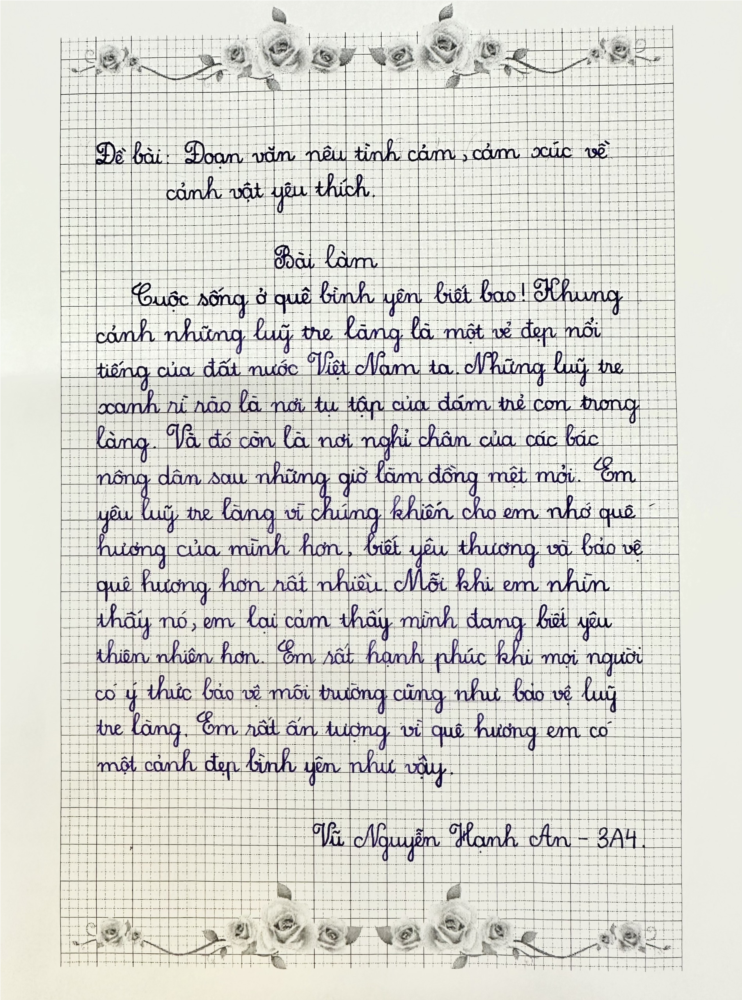 Đề bài: Đoạn văn nêu tình cảm, cảm xúc về
cảnh vật yêu thích.
Bài làm
Cuộc sống ở quê bình yên biết bao! Khung
cảnh những luỹ tre làng là một vẻ đẹp nổi
tiếng của đất nước Việt Nam ta. Những luỹ tre
xanh rì rào là nơi tụ tập của đám trẻ con trong
làng. Và đó còn là nơi nghỉ chân của các bác
nông dân sau những giờ làm đồng mệt mỏi. Em
yêu luỹ tre làng vì chúng khiến cho em nhớ quê
hương của mình hơn, biết yêu thương và bảo vệ
quê hương hơn rất nhiều. Mỗi khi em nhìn
thấy nó, em lại cảm thấy mình đang biết yêu
thiên nhiên hơn. Em rất hạnh phúc khi mọi người
có ý thức bảo vệ môi trường cũng như bảo vệ luỹ
tre làng. Em rất ấn tượng vì quê hương em có
một cảnh đẹp bình yên như vậy.
Vũ Nguyễn Hạnh An - 3A4.